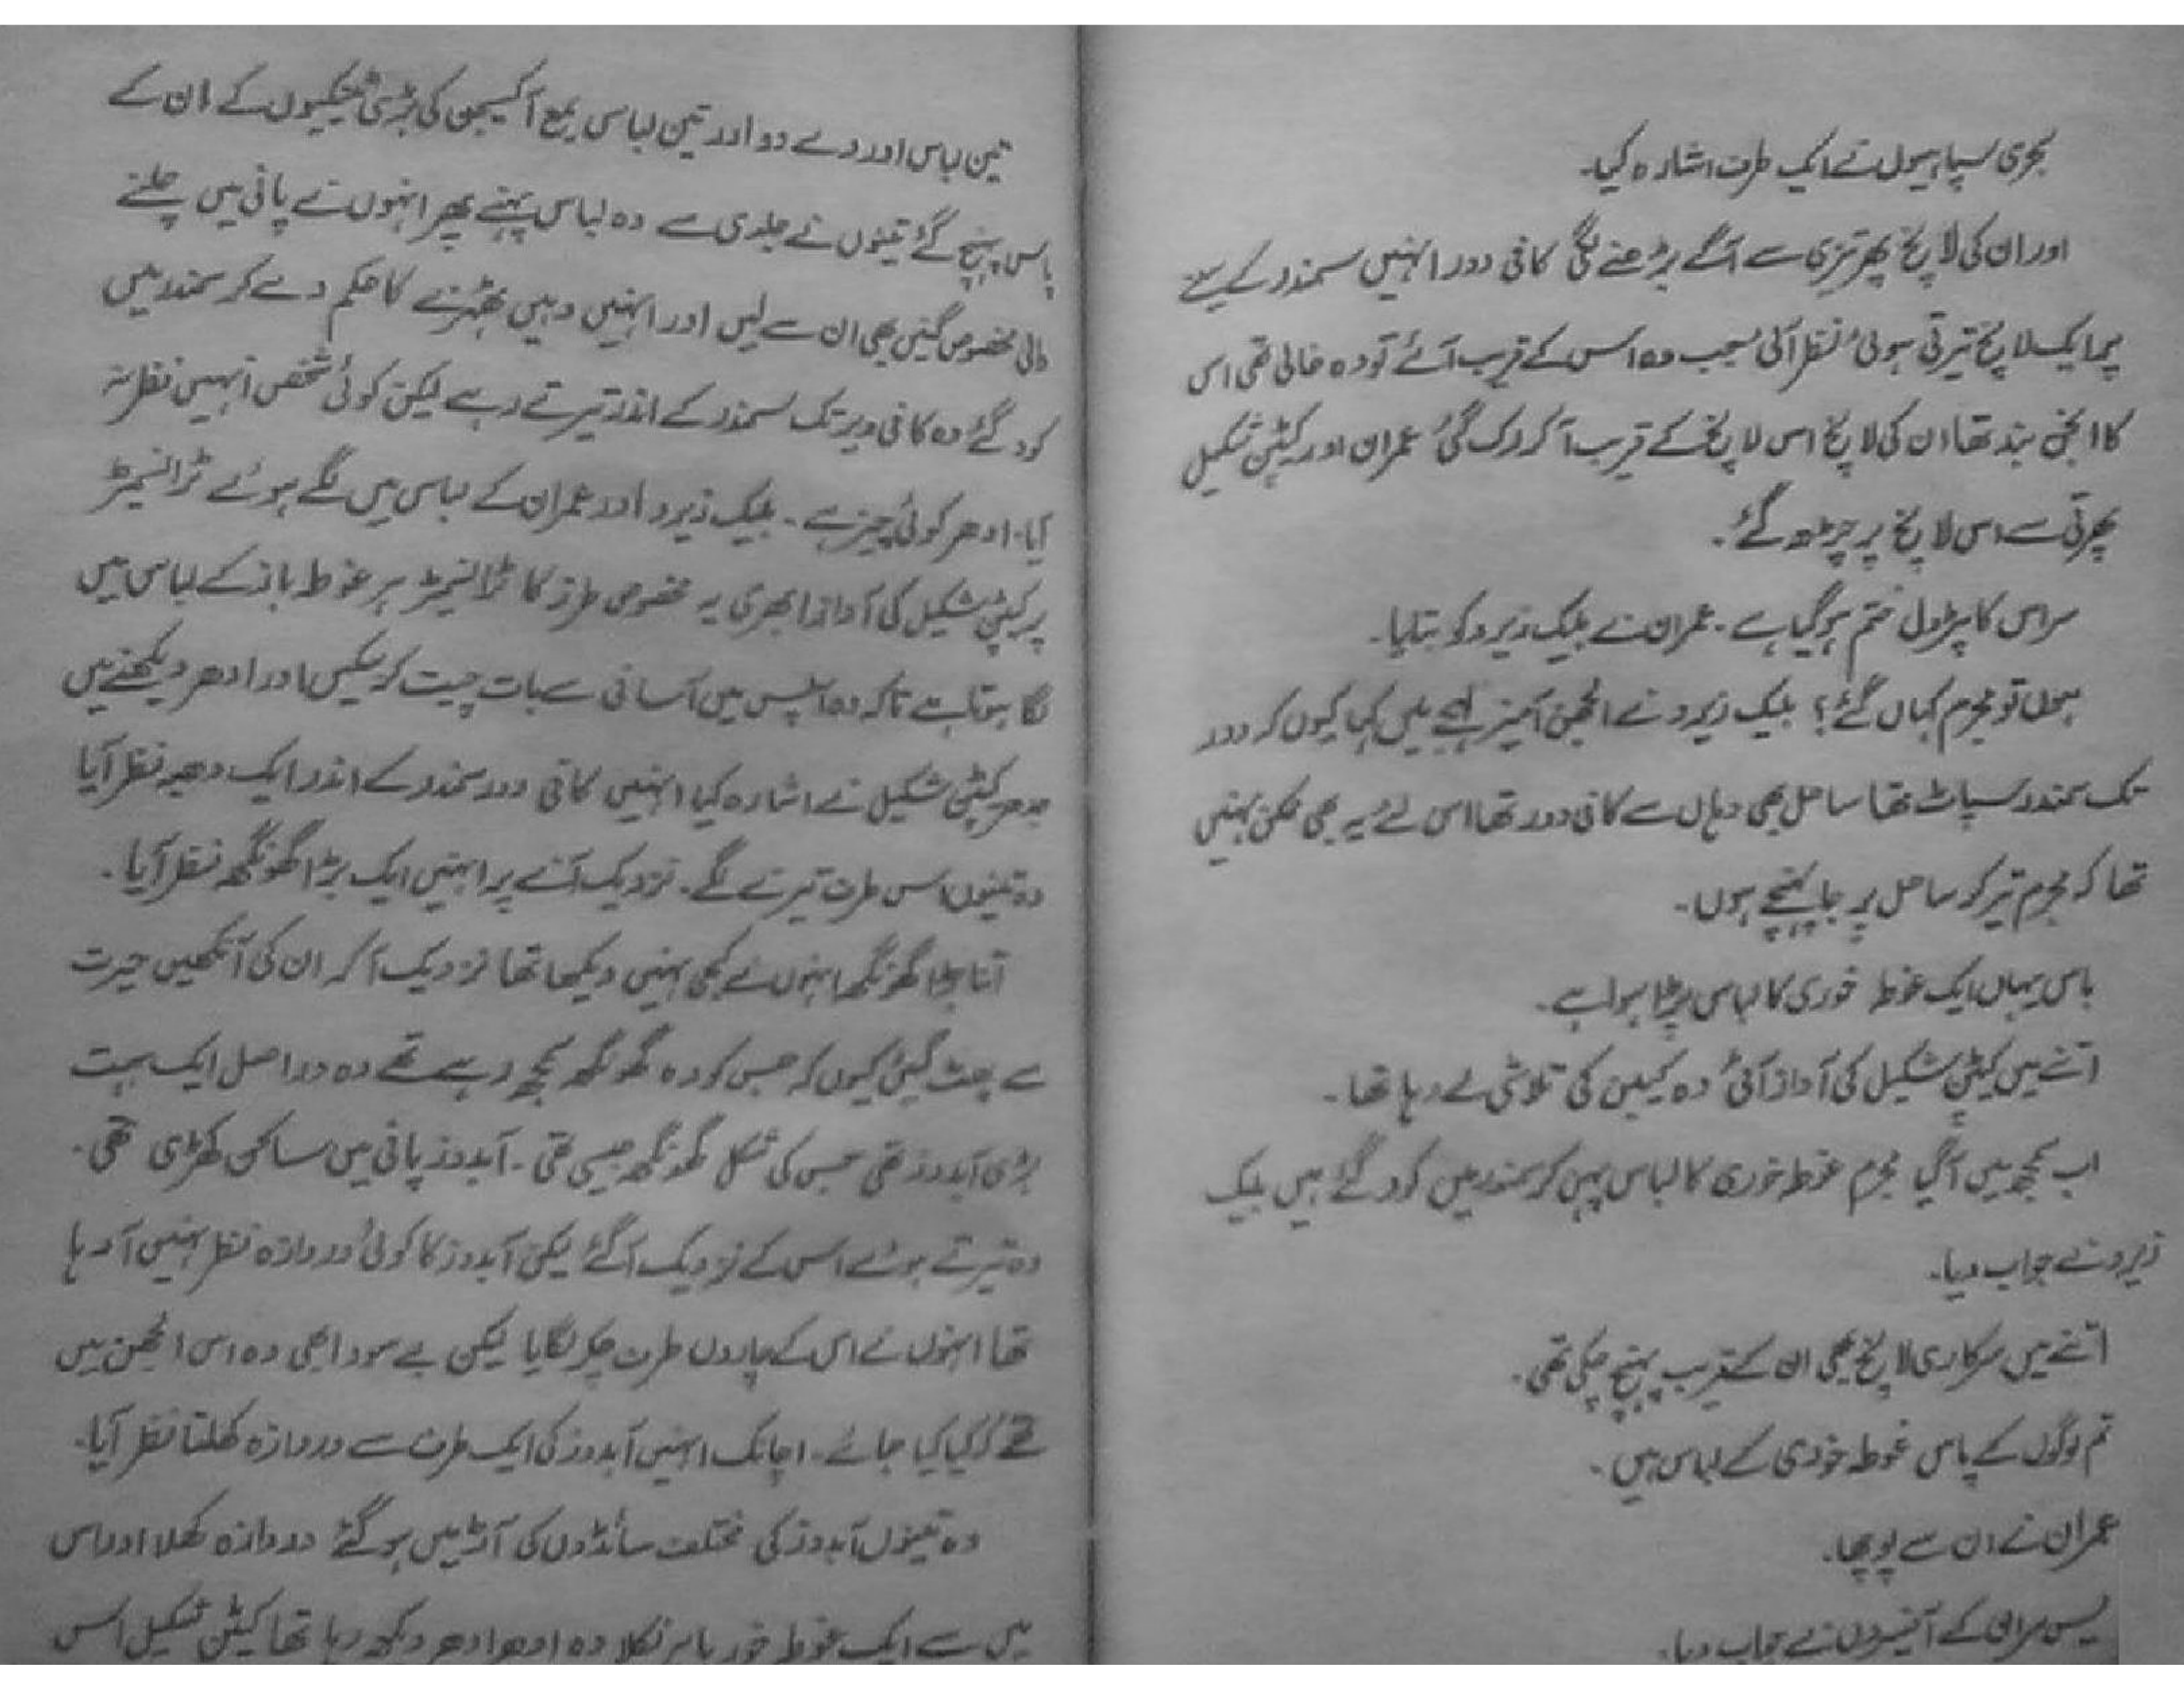 بحری سپاہیوں نے ایک طرف اشارہ کیا۔
اور ان کی لانچ پھر تیزی سے آگے بڑھنے لگی کافی دور انہیں سمندر کے سینے
پر ایک لانچ تیرتی ہوئی نظر آئی جب وہ اس کے قریب آئے تو وہ خالی تھی اس
کا انجن بند تھا ان کی لانچ اس لانچ کے قریب آ کر رک گئی عمران اور کیپٹن شکیل
پھرتی سے اس لانچ پر چڑھ گئے۔
سر اس کا پٹرول ختم ہو گیا ہے۔ عمران نے بلیک زیرو کو بتایا۔
بھلا تو مجرم کہاں گئے؟ بلیک زیرو نے الجھن آمیز لہجے میں کہا کیوں کہ دور
تک سمندر سپاٹ تھا ساحل بھی وہاں سے کافی دور تھا اس لئے یہ بھی ممکن نہیں
تھا کہ مجرم تیر کر ساحل پر جا پہنچے ہوں۔
باس یہاں ایک غوطہ خوری کا لباس پڑا ہوا ہے۔
اتنے میں کیپٹن شکیل کی آواز آئی وہ کیبن کی تلاشی لے رہا تھا۔
اب سمجھ میں آ گیا مجرم غوطہ خوری کا لباس پہن کر سمندر میں کود گئے ہیں بلیک
زیرو نے جواب دیا۔
اتنے میں سرکاری لانچ بھی ان کے قریب پہنچ چکی تھی۔
تم لوگوں کے پاس غوطہ خوری کے لباس ہیں۔
عمران نے ان سے پوچھا۔
یس سر ان کے آفیسروں نے جواب دیا۔
تین لباس اور دے دو اور تین لباس بمع آکسیجن کی بڑی ٹینکیوں کے ان کے
پاس پہنچ گئے تینوں نے جلدی سے وہ لباس پہنے پھر انہوں نے پانی میں چلنے
والی مخصوص گنیں بھی ان سے لیں اور انہیں وہیں ٹھہرنے کا حکم دے کر سمندر میں
کود گئے وہ کافی دیر تک سمندر کے اندر تیرتے رہے لیکن کوئی شخص انہیں نظر نہ
آیا۔ ادھر کوئی چیز ہے۔ بلیک زیرو اور عمران کے لباس میں لگے ہوئے ٹرانسمیٹر
پر کیپٹن شکیل کی آواز ابھری یہ مخصوص طرز کا ٹرانسمیٹر ہر غوطہ باز کے لباس میں
لگا ہوتا ہے تاکہ وہ آپس میں آسانی سے بات چیت کر سکیں اور ادھر دیکھنے میں
جدھر کیپٹن شکیل نے اشارہ کیا انہیں کافی دور سمندر کے اندر ایک دھبہ نظر آیا
وہ تینوں اس طرف تیرنے لگے۔ نزدیک آنے پر انہیں ایک بڑا گھونگھ نظر آیا۔
اتنا بڑا گھونگھ انہوں نے کبھی نہیں دیکھا تھا نزدیک آ کر ان کی آنکھیں حیرت
سے پھٹ گئیں کیوں کہ جس کو وہ گھونگھ سمجھ رہے تھے وہ دراصل ایک بہت
بڑی آبدوز تھی جس کی شکل گھونگھ جیسی تھی۔ آبدوز پانی میں ساکن کھڑی تھی۔
وہ تیرتے ہوئے اس کے نزدیک آ گئے لیکن آبدوز کا کوئی دروازہ نظر نہیں آ رہا
تھا انہوں نے اس کے چاروں طرف چکر لگایا لیکن بے سود ابھی وہ اس الجھن میں
تھے کہ کیا کیا جائے۔ اچانک انہیں آبدوز کی ایک طرف سے دروازہ کھلتا نظر آیا۔
وہ تینوں آبدوز کی مختلف سائڈوں کی آڑ میں ہو گئے دروازہ کھلا اور اس
میں سے ایک غوطہ خور باہر نکلا وہ ادھر ادھر دیکھ رہا تھا کیپٹن شکیل اس